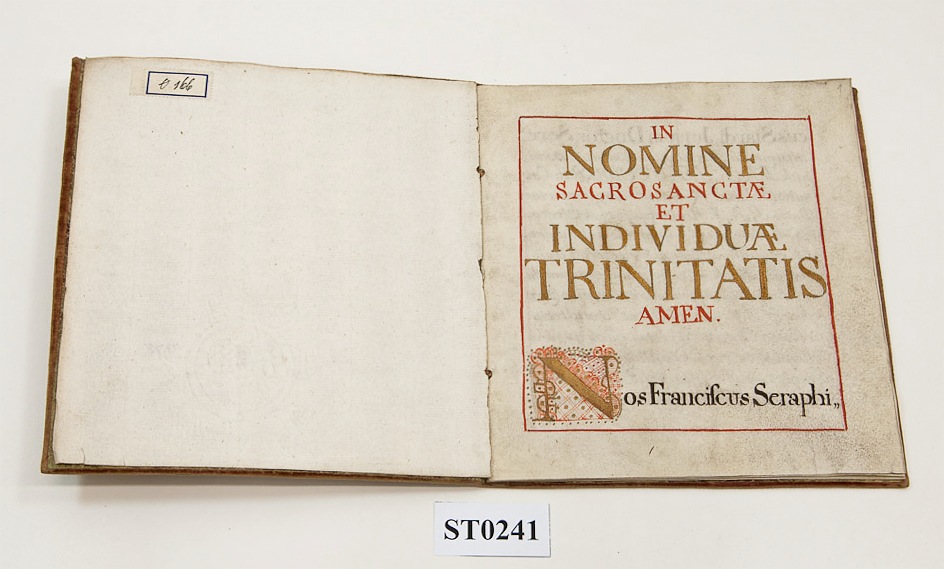 166
IN
NOMINE
SACROSANCTÆ
ET
INDIVIDUÆ
TRINITATIS
AMEN.
Nos Franciſcus Seraphi„
ST0241